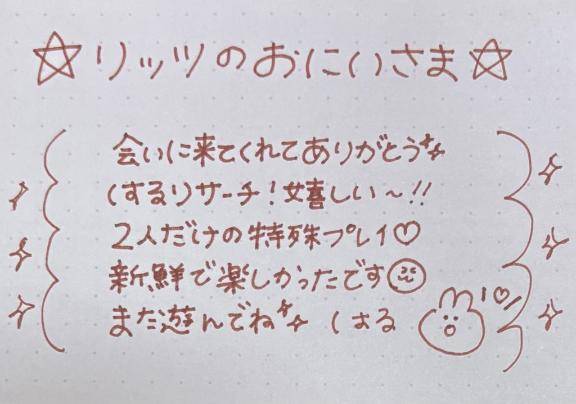 ☆リッツのおにいさま☆
会いに来てくれてありがとう✨
はるリサーチ！嬉しい〜!!
2人だけの特殊プレイ♡
新鮮で楽しかったです
また遊んでね✨ はる